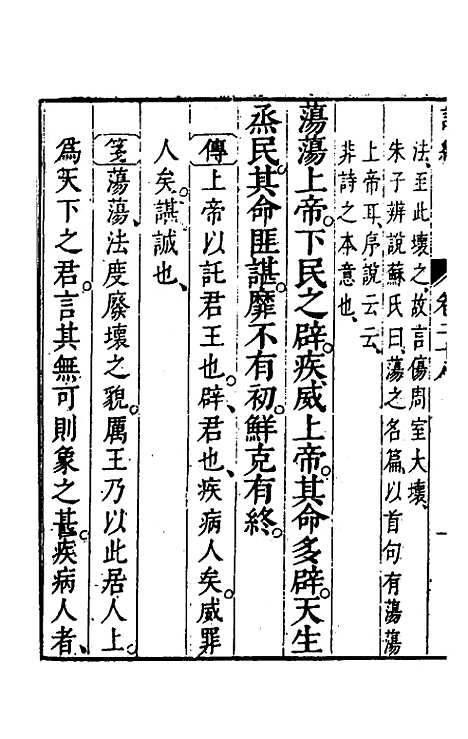 法至此壞之故言傷周室大壞、
朱子辨說蘇氏曰蕩之名篇以首句有蕩蕩
上帝耳序說云云、
非詩之本意也、
蕩蕩上帝。下民之辟。疾威上帝。其命多辟。天生
烝民。其命匪諶。靡不有初。鮮克有終。
傳上帝以託君王也。辟君也、疾病人矣。威罪
人矣。諶誠也、
箋蕩蕩、法度廢壞之貌。厲王乃以此居人上。
爲天下之君。言其無可則象之甚。疾病人者、